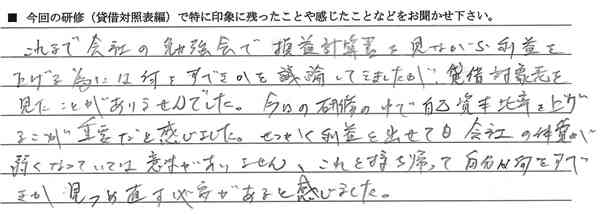 ■ 今回の研修（貸借対照表編）で特に印象に残ったことや感じたことなどをお聞かせ下さい。
これまで会社の勉強会で損益計算書を見ながら利益を
上げる為には何をすべきかを議論してきましたが、貸借対象表を
見たことがありませんでした。今回の研修の中で自己資本比率を上げ
ることが重要だと感じました。せっかく利益を出せても会社の体質が
弱くなっていては意味がありません、これを持ち帰って自分は何をすべ
きか見つめ直す必要があると感じました。